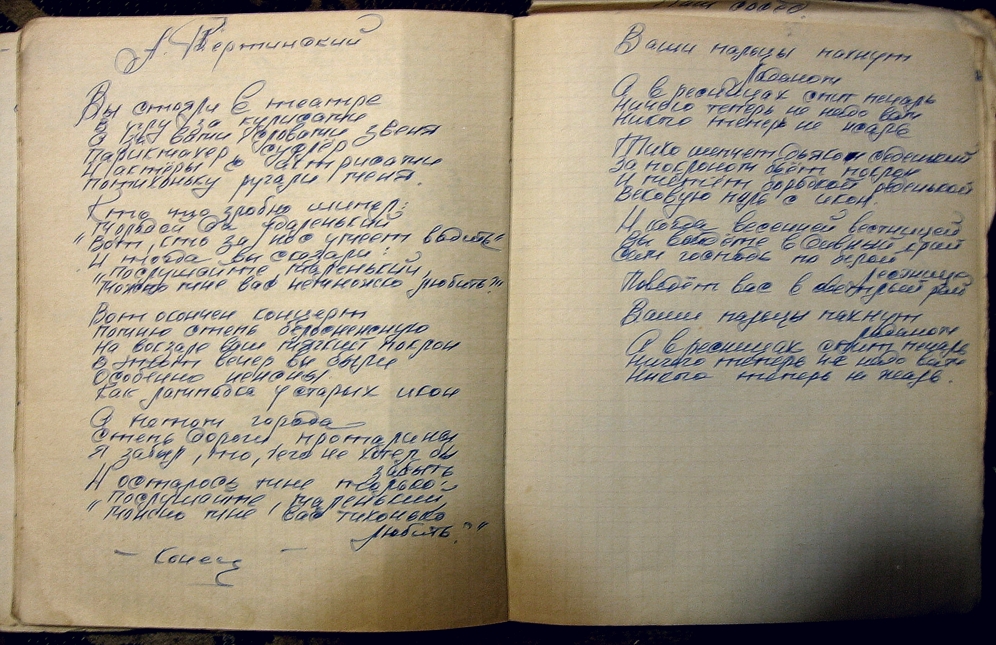 А. Вертинский
Вы стояли в театре
в углу за кулисами
А за вами словами звеня
Парикмахер, суфлёр
И актёры с актрисами
Потихоньку ругали меня.
Кто-то злобно шипел:
Молодой да удаленький
"Вот, кто за нос умеет водить"
И тогда вы сказали:
"Послушайте маленький,
Можно мне вас немножко любить?"
Вот окончен концерт
Помню степь белоснежную
На вокзале ваш мягкий поклон
В этот вечер вы были
Особенно нежны
Как лампадка у старых икон
А потом города
Степь дороги, проталины
Я забыл, то, чего не хотел бы
забыть
И осталось мне только:
"Послушайте, маленький,
Можно мне, вас тихонько
любить?"
- Конец -
Ваши пальцы пахнут
ладаном
А в ресницах спит печаль
Ничего теперь не надо вам
Никого теперь не жаль
Тихо шепчет дьякон седенький
За поклоном бьёт поклон
И метёт бородкой реденькой
Вековую пыль с икон.
И когда весенней вестницей
Вы войдёте в дивный край
Сам господь по белой
лестнице
Поведёт вас в светлый рай
Ваши пальцы пахнут
ладаном
А в ресницах спит печаль
Ничего теперь не надо вам
Никого теперь не жаль.